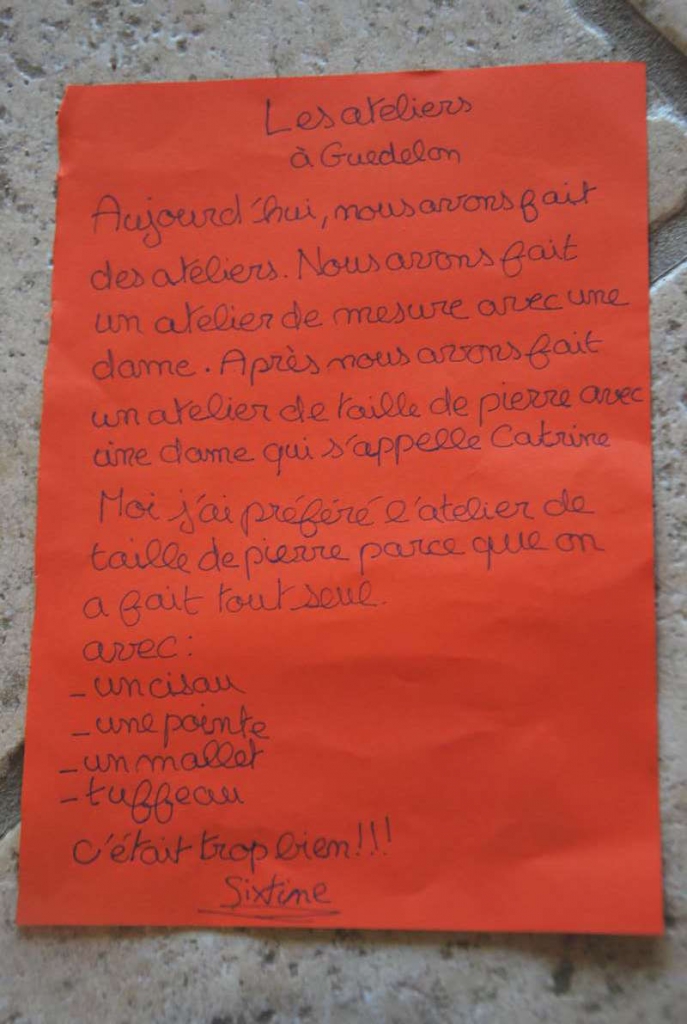 Les ateliers
à Guedelon
Aujourd'hui, nous avons fait
des ateliers. Nous avons fait
un atelier de mesure avec une
dame. Après nous avons fait
un atelier de taille de pierre avec
une dame qui s'appelle Catrine
Moi j'ai préféré l'atelier de
taille de pierre parce que on
a fait tout seul.
avec :
- un cisau
- une pointe
- un mallet
- tuffeau
c'était trop bien!!!
Sixtine